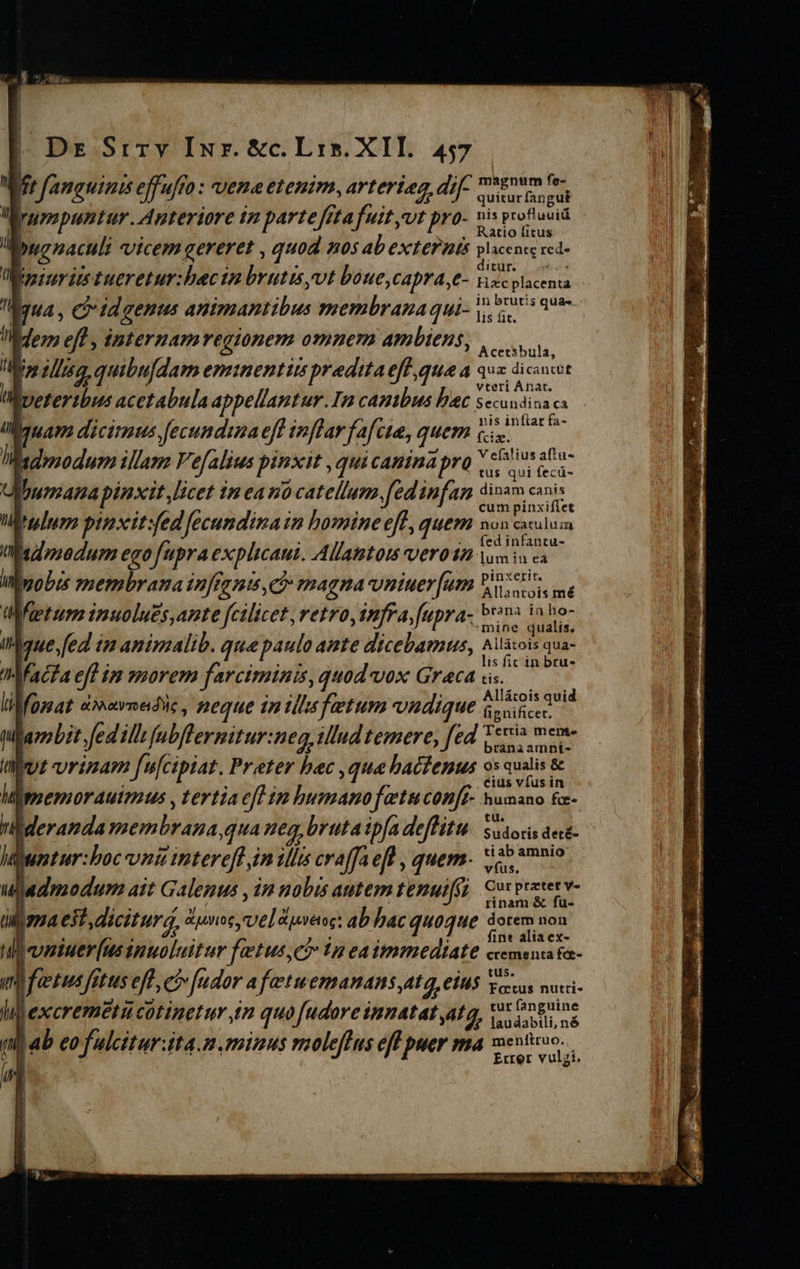 DE SITV INF. &c. LIB. XII. 457
fit sanguinis effusio: venæ etenim, arteriæq, dis-
rumpuntur. Anteriore in parte sita fuit, vt pro-
pugnaculi vicem gereret, quod nos ab externis
iniuriis tueretur: hæc in brutis, vt boue, capra, e-
qua, & id genus animantibus membrana qui-
dem est, internam regionem omnem ambiens,
in illisq, quibusdam eminentiis prædita est, quæ a
veteribus acetabula appellantur. In canibus hæc
quam dicimus, secundina est instar fasciæ, quem
admodum illam Vesalius pinxit, qui caninã pro
humana pinxit, licet in ea nõ catellum, sed infan
tulum pinxit: sed secundina in homine est, quem
admodum ego supra explicaui. Allantois vero in
nobis membrana insignis, & magna vniuersum
fœtum inuoluēs, ante scilicet, retro, infra, supra-
que, sed in animalib. quæ paulo ante dicebamus,
facta est in morem farciminis, quod vox Græca
sonat ἀλλαντοειδὴς, neque in illis fœtum vndique
ambit, sed illi substernitur: neq, illud temere, sed
vt vrinam suscipiat. Præter hæc, quæ hactenus
memorauimus, tertia est in humano fœtu consi-
deranda membrana, qua neq, bruta ipsa destitu
untur: hoc vnũ interest, in illis crassa est, quem-
admodum ait Galenus, in nobis autem tenuissi
ma est, diciturq, ἄμνιος, vel ἀμνεῖος: ab hac quoque
vniuersus inuoluitur fœtus, & in ea immediate
fœtus situs est, & sudor a fœtu emanans, atq, eius
excremētũ cõtinetur, in quo sudore innatat, atq,
ab eo fulcitur: ita. n. minus molestus est puer ma
magnum se-
quitur sangui
nis profluuiũ
Ratio situs
placentę red-
ditur.
Hæc placenta
in brutis qua-
lis sit.
Acetabula,
quæ dicantur
vteri Anat.
Secundina ca
nis instar fa-
sciæ.
Vesalius astu-
tus qui secũ-
dinam canis
cum pinxisset
non catulum
sed infantu-
lum in ea
pinxerit.
Allantois mē
brana in ho-
mine qualis.
Allãtois qua-
lis sit in bru-
tis.
Allãtois quid
significet.
Tertia mem-
brana amni-
os qualis &
eius vsus in
humano fœ-
tu.
Sudoris detē-
ti ab amnio
vsus.
Cur præter v-
rinam & su-
dorem non
sint alia ex-
crementa fœ-
tus.
Fœtus nutri-
tur sanguine
laudabili, nō
menstruo.
Error vulgi.